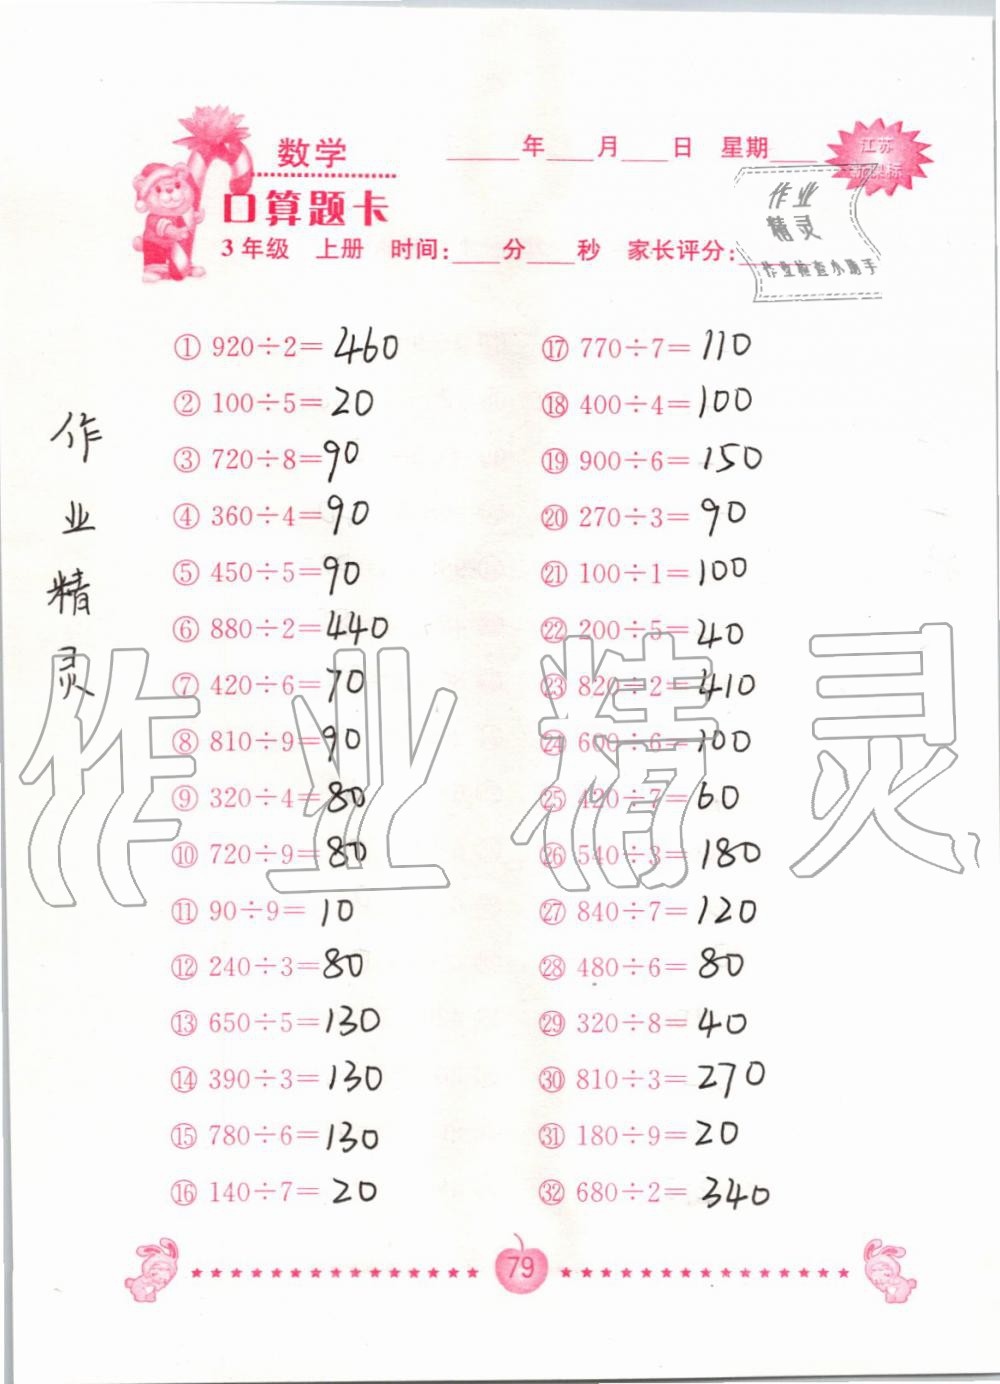 数学
____年____月____日 星期____
江苏
新课标
口算题卡
3年级 上册 时间:____分____秒 家长评分:____
作业
精灵
作业检查小助手
① 920÷2=460
② 100÷5=20
③ 720÷8=90
④ 360÷4=90
⑤ 450÷5=90
⑥ 880÷2=440
⑦ 420÷6=70
⑧ 810÷9=90
⑨ 320÷4=80
⑩ 720÷9=80
⑪ 90÷9=10
⑫ 240÷3=80
⑬ 650÷5=130
⑭ 390÷3=130
⑮ 780÷6=130
⑯ 140÷7=20
⑰ 770÷7=110
⑱ 400÷4=100
⑲ 900÷6=150
⑳ 270÷3=90
㉑ 100÷1=100
㉒ 200÷5=40
㉓ 820÷2=410
㉔ 600÷6=100
㉕ 420÷7=60
㉖ 540÷3=180
㉗ 840÷7=120
㉘ 480÷6=80
㉙ 320÷8=40
㉚ 810÷3=270
㉛ 180÷9=20
㉜ 680÷2=340
作业精灵
作业精灵
79